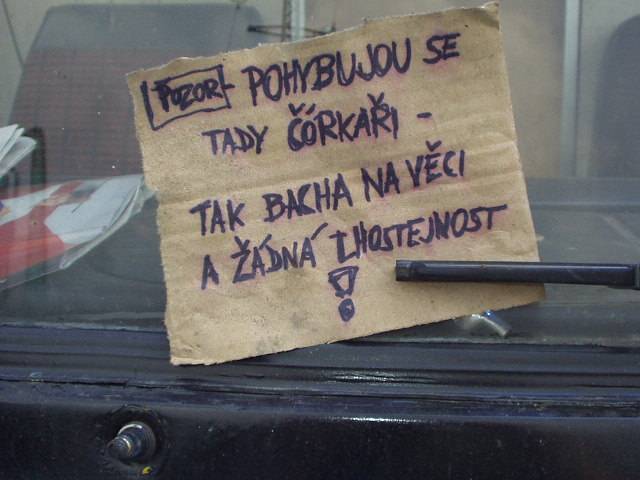 POZOR - POHYBUJOU SE
TADY ČÓRKAŘI -
TAK BACHA NA VĚCI
A ŽÁDNÁ LHOSTEJNOST
!